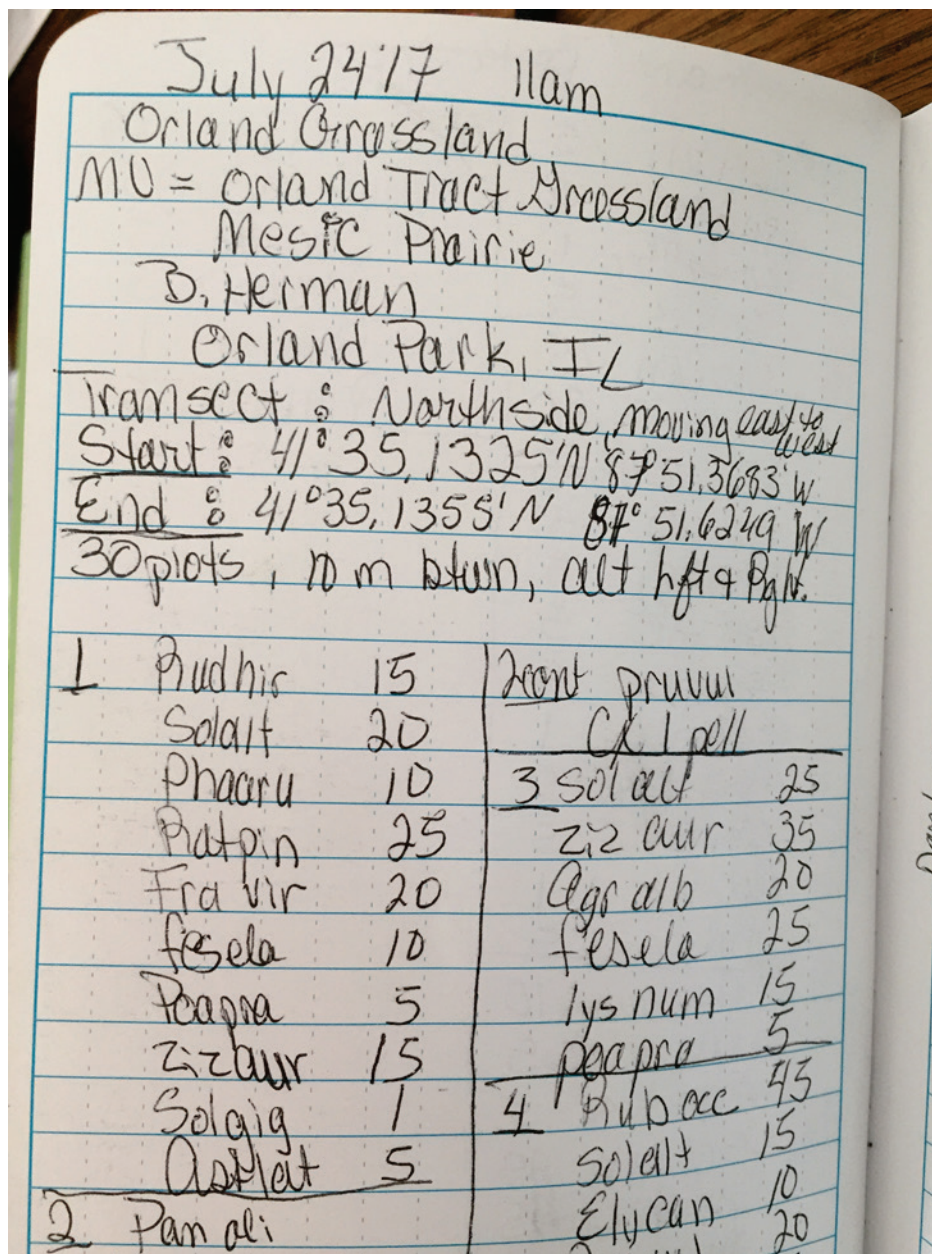 July 24'17 11am
Orland Grassland
MU = Orland Tract Grassland
Mesic Prairie
B. Herman
Orland Park, IL
Transect : Northside, moving east to west
Start : 41° 35.1325'N 87° 51.3683'W
End : 41° 35.1355'N 87° 51.6249 W
30 plots, 10 m btwn, alt lft & Rght.
1 Rudhir 15
Solalt 20
Phaaru 10
Ratpin 25
Fra vir 20
fesela 10
Poapra 5
Zizaur 15
Solgig 1
5
2 Pan
2cont pruvul
3 Sol alt 25
Ziz aur 35
Agr alb 20
fesela 25
lys num 15
poapra 5
4 Rub occ 45
Solalt 15
Elycan 10
20